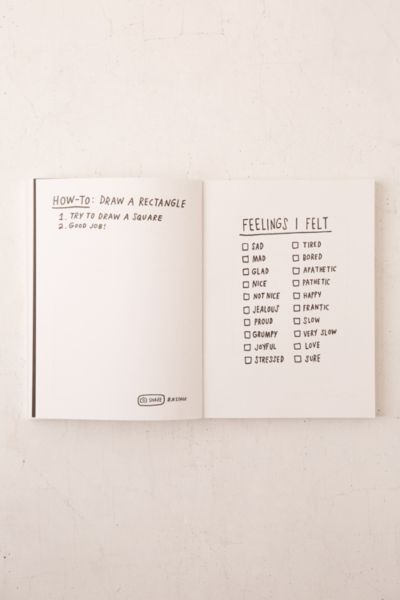 HOW-TO: DRAW A RECTANGLE
1. TRY TO DRAW A SQUARE
2. GOOD JOB!
SHARE
FEELINGS I FELT
SAD
MAD
GLAD
NICE
NOT NICE
JEALOUS
PROUD
GRUMPY
JOYFUL
STRESSED
TIRED
BORED
APATHETIC
PATHETIC
HAPPY
FRANTIC
SLOW
VERY SLOW
LOVE
SURE